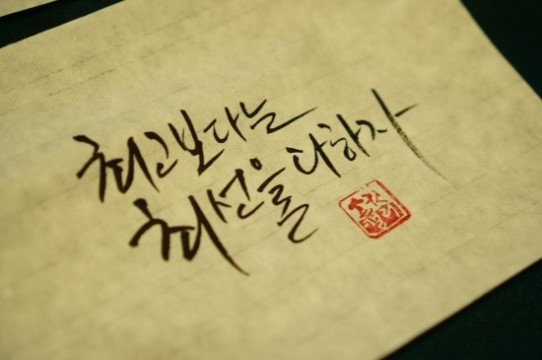 최고보다는
최선을 다하자